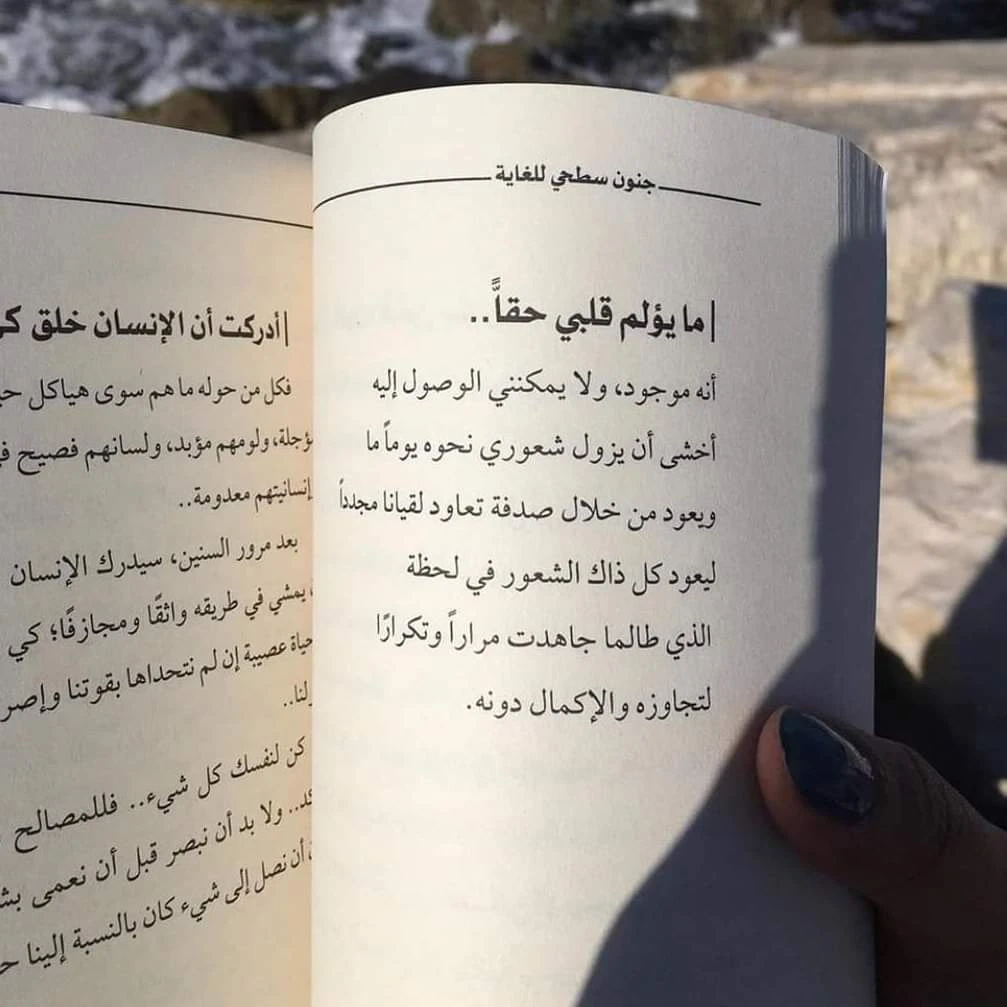 جنون سطحي للغاية
ما يؤلم قلبي حقاًّ..
أنه موجود، ولا يمكنني الوصول إليه
أخشى أن يزول شعوري نحوه يوماً ما
ويعود من خلال صدفة تعاود لقيانا مجدداً
ليعود كل ذاك الشعور في لحظة
الذي طالما جاهدت مراراً وتكرارًا
لتجاوزه والإكمال دونه.
أدركت أن الإنسان خلق
فكل من حوله ما هم سوى هياكل
ولومهم مؤبد، ولسانهم فصيح
إنسانيتهم معدومة..
بعد مرور السنين، سيدرك الإنسان
يمشي في طريقه واثقًا ومجازفًا؛ كي
عصيبة إن لم نتحداها بقوتنا
كن لنفسك كل شيء.. فللمصالح
ولا بد أن نبصر قبل أن نعمى
أن نصل إلى شيء كان بالنسبة إلينا